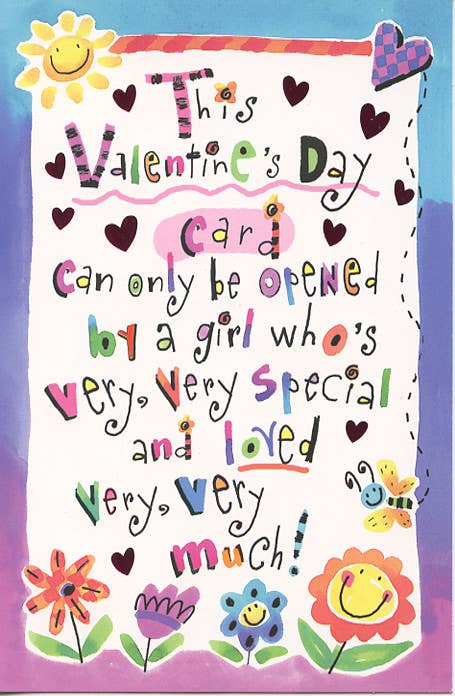 This
Valentine's Day
card
can only be opened
by a girl who's
very, very special
and loved
very, very
much!